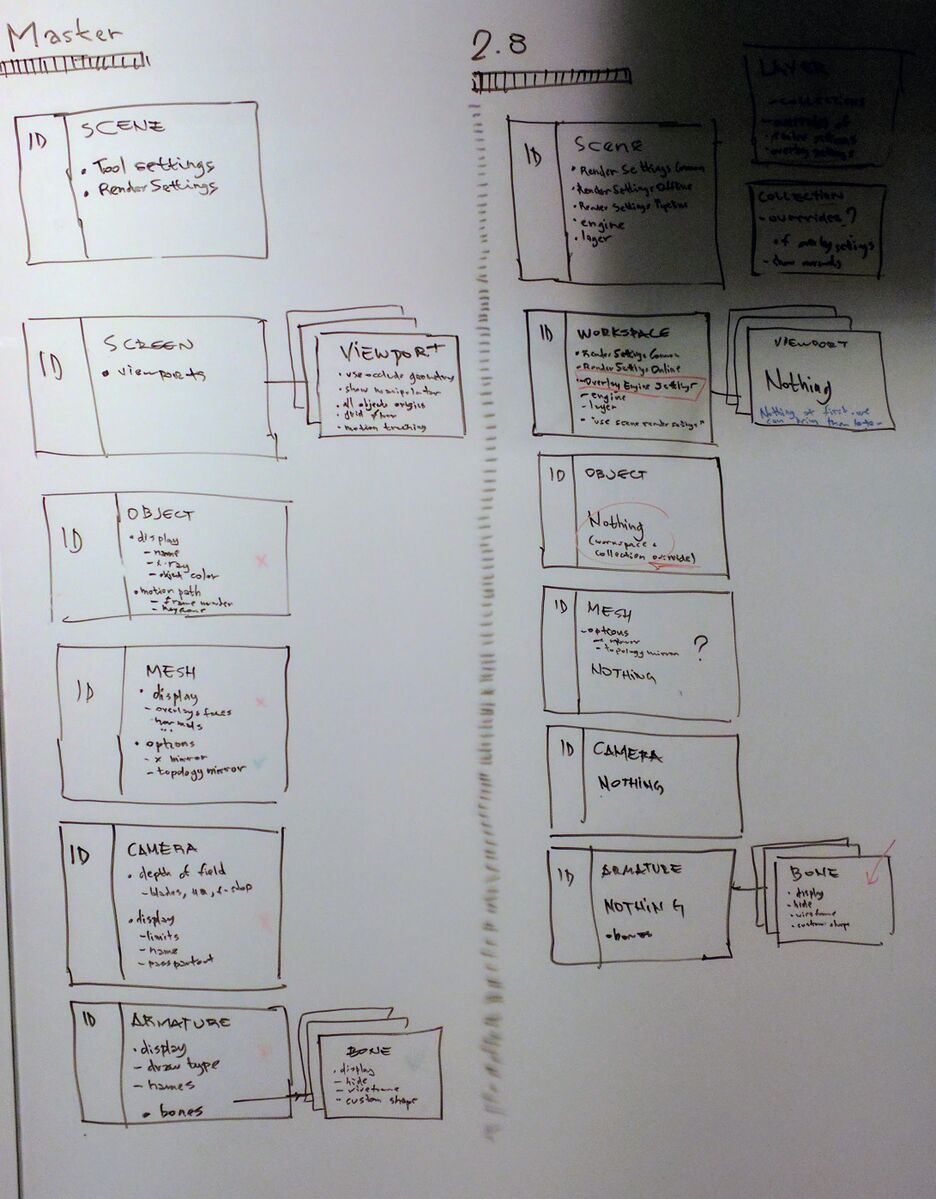 Master
ID
SCENE
• Tool settings
• Render Settings
ID
SCREEN
• viewports
VIEWPORT
• use occlude geometry
• show manipulator
• all objects origins
• grid floor
• motion tracking
ID
OBJECT
• display
- name
- x-ray
- object color
• motion path
- frame number
- keyframe
x
ID
MESH
• display
- overlays faces
- normals
...
• options
- x mirror
- topology mirror
x
ID
CAMERA
• depth of field
- blades, f-stop
• display
- limits
- name
- passpartout
x
ID
ARMATURE
• display
- draw type
- names
• bones
x
BONE
• display
- hide
- wireframe
- custom shape
2.8
LAYER
- collections
- overrides of
- render settings
- overlay settings
ID
Scene
• Render Settings Common
• Render Settings Offline
• Render Settings Pipeline
• engine
• layer
COLLECTION
- overrides?
• of overlay settings
ID
WORKSPACE
• Render Settings Common
• Render Settings Online
- Overlay Engine Settings
- engine
- layer
- "use scene render settings"
VIEWPORT
Nothing
Nothing at first, we
can bring them later
ID
OBJECT
Nothing
(workspace +
collection override)
ID
MESH
- options
- x mirror
- topology mirror
?
NOTHING
ID
CAMERA
NOTHING
ID
ARMATURE
NOTHING
• bones
BONE
• display
- hide
- wireframe
- custom shape